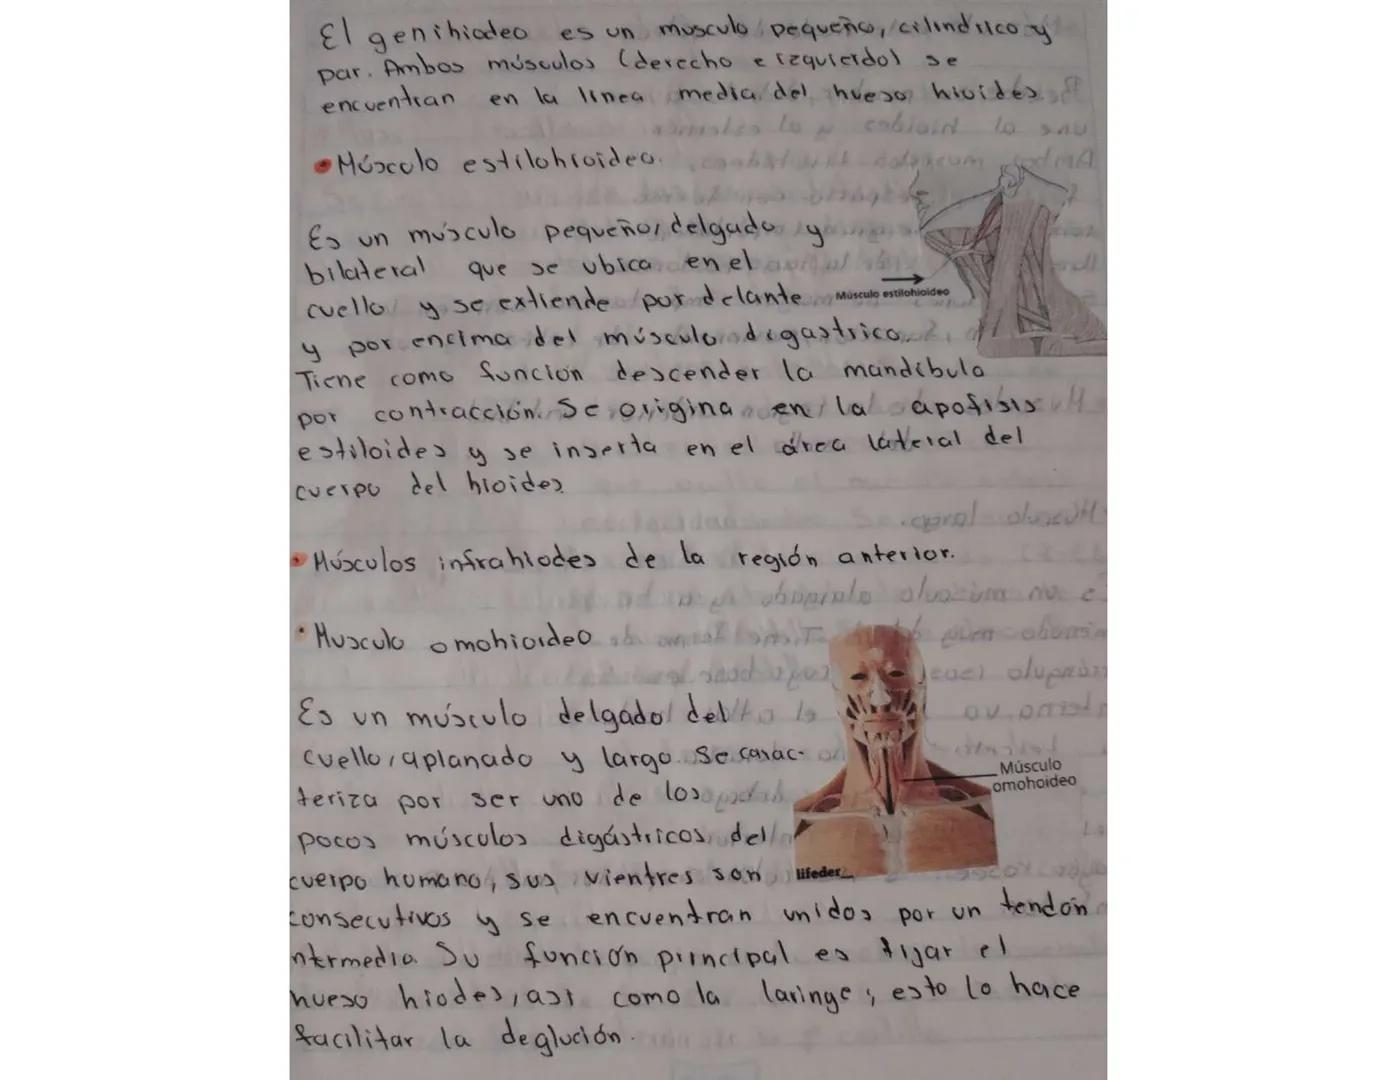 El genihiodeo es un musculo pequeño, cilindrico y
par. Ambos músculos (derecho e izquierdo) se
encuentran en la linea media del hueso hioides
Músculo estilohioideo.
Es un músculo pequeño, delgado y
bilateral que se ubica en el
cuello y se extiende por delante
y por encima del músculo digastrico.
Músculo estilohioideo
Tiene como funcion descender la mandibula
por contracción. Se origina en la apofisis
estiloides y se inserta en el área lateral del
cuerpo del hioides
Músculos infrahiodes de la región anterior.
Musculo omohioideo
Es un músculo delgado del
cuello, aplanado y largo. Se carac-
teriza por ser uno de los
pocos músculos digástricos del
cuerpo humano, sus vientres son
Músculo
omohoideo
lifeder
consecutivos y se encuentran unidos por un tendón
ntermedia. Su función principal es fijar el
hueso hiodes, asi como la laringe; esto lo hace
facilitar la deglución.